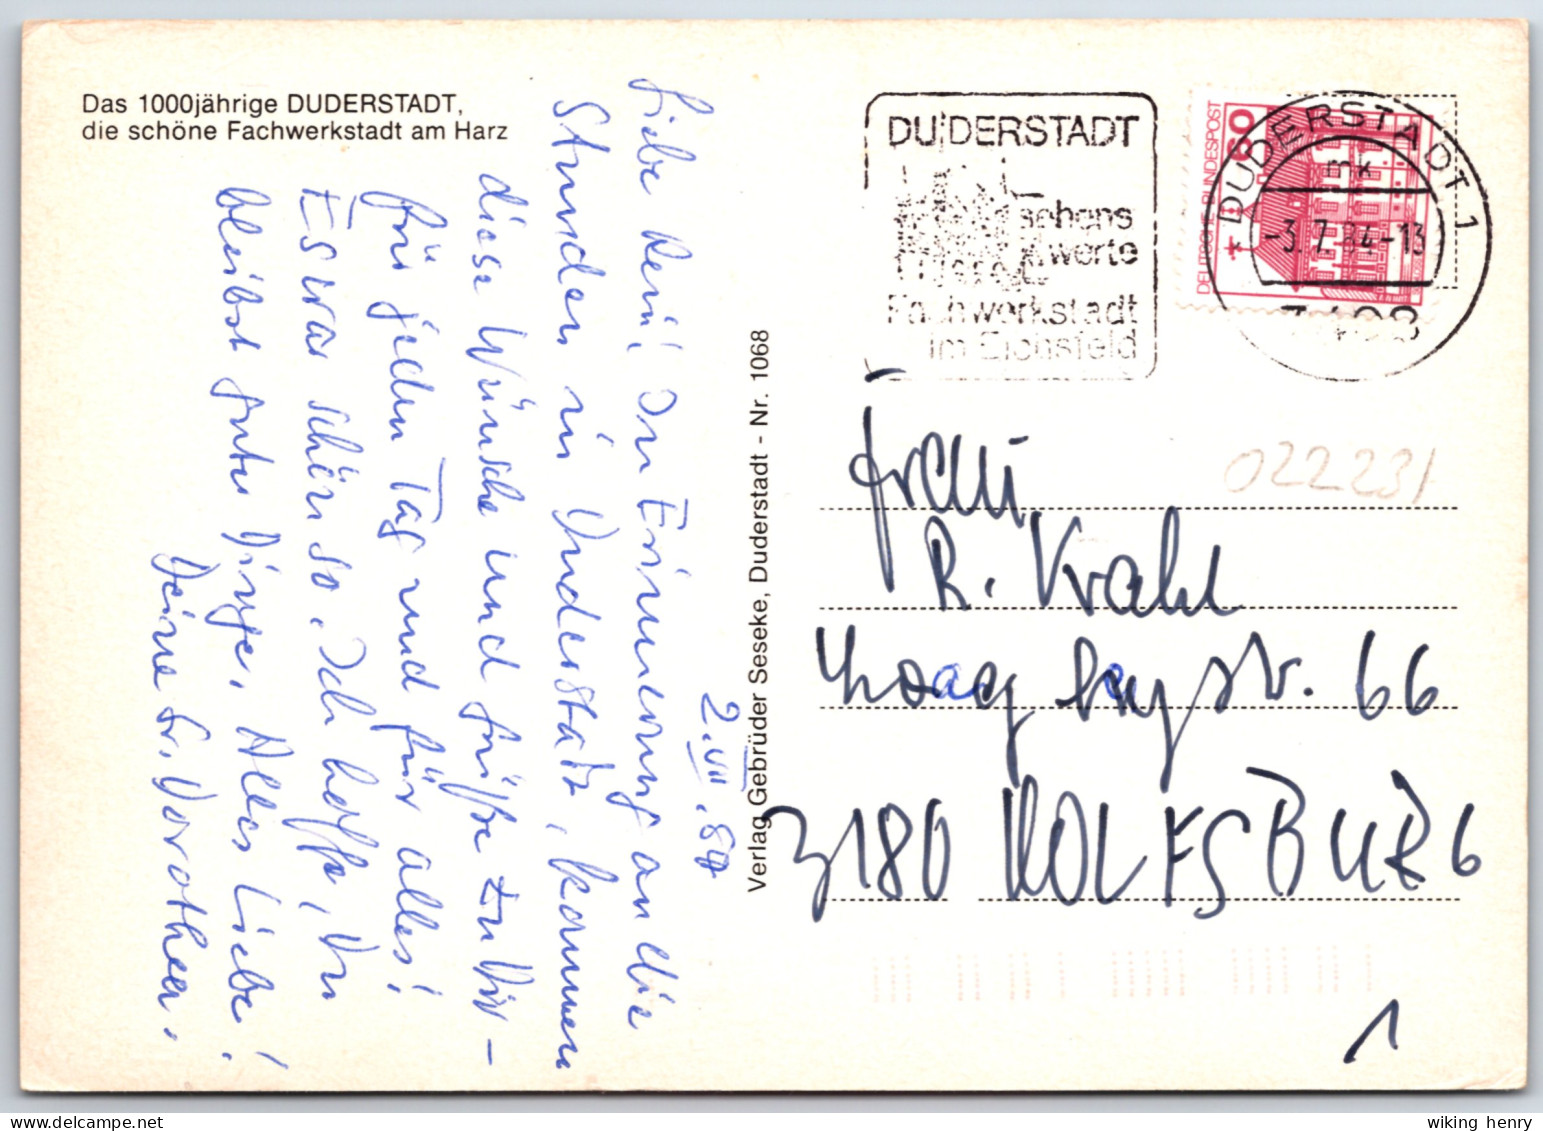 Das 1000jährige DUDERSTADT,
die schöne Fachwerkstadt am Harz
2.VII.84
Liebe Reni! In Erinnerung an die
Stunden in Duderstadt, kommen
diese Wünsche und Grüße zu Dir –
für jeden Tag und für alles!
Es war schön so. Ich hoffe, Du
bleibst guter Dinge. Alles Liebe!
Deine Gr. Dorothea.
Verlag Gebrüder Seseke, Duderstadt - Nr. 1068
DUDERSTADT
sehens
werte
Fachwerkstadt
im Eichsfeld
DEUTSCHE BUNDESPOST
60
DUDERSTADT 1
mk
-3.7.84-13
3408
022231
Frau
R. Krahl
str. 66
3180 WOLFSBURG
1
wiking henry